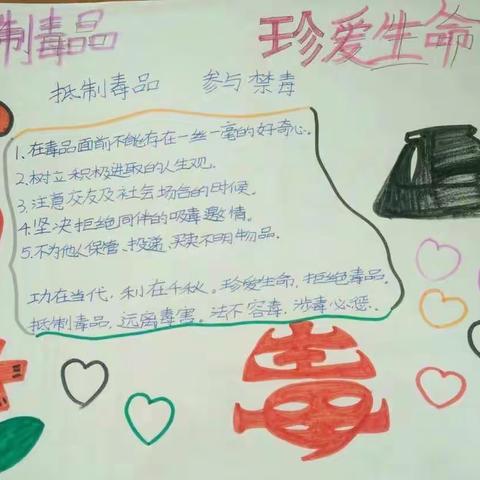 制毒品 珍爱生命
抵制毒品 参与禁毒
1、在毒品面前不能存在一丝一毫的好奇心。
2、树立积极进取的人生观。
3、注意交友及社会场合的时候。
4、坚决拒绝同伴的吸毒邀情。
5、不为他人保管、投递、买卖不明物品。
功在当代,利在千秋。珍爱生命,拒绝毒品。
抵制毒品,远离毒害。法不容毒,涉毒必惩.
毒